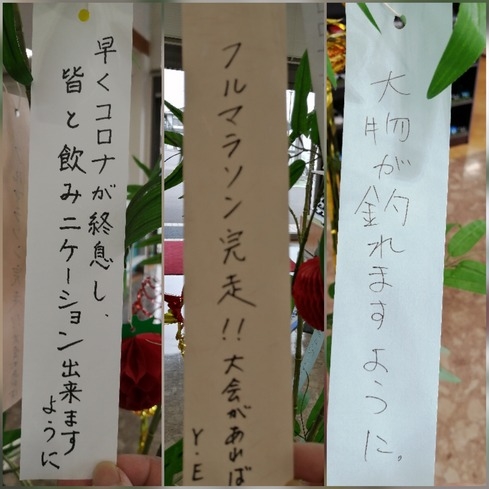 早くコロナが終息し、
皆と飲みニケーション出来ます
ように
フルマラソン完走!!大会があれば
Y.E
大物が
釣れますように。